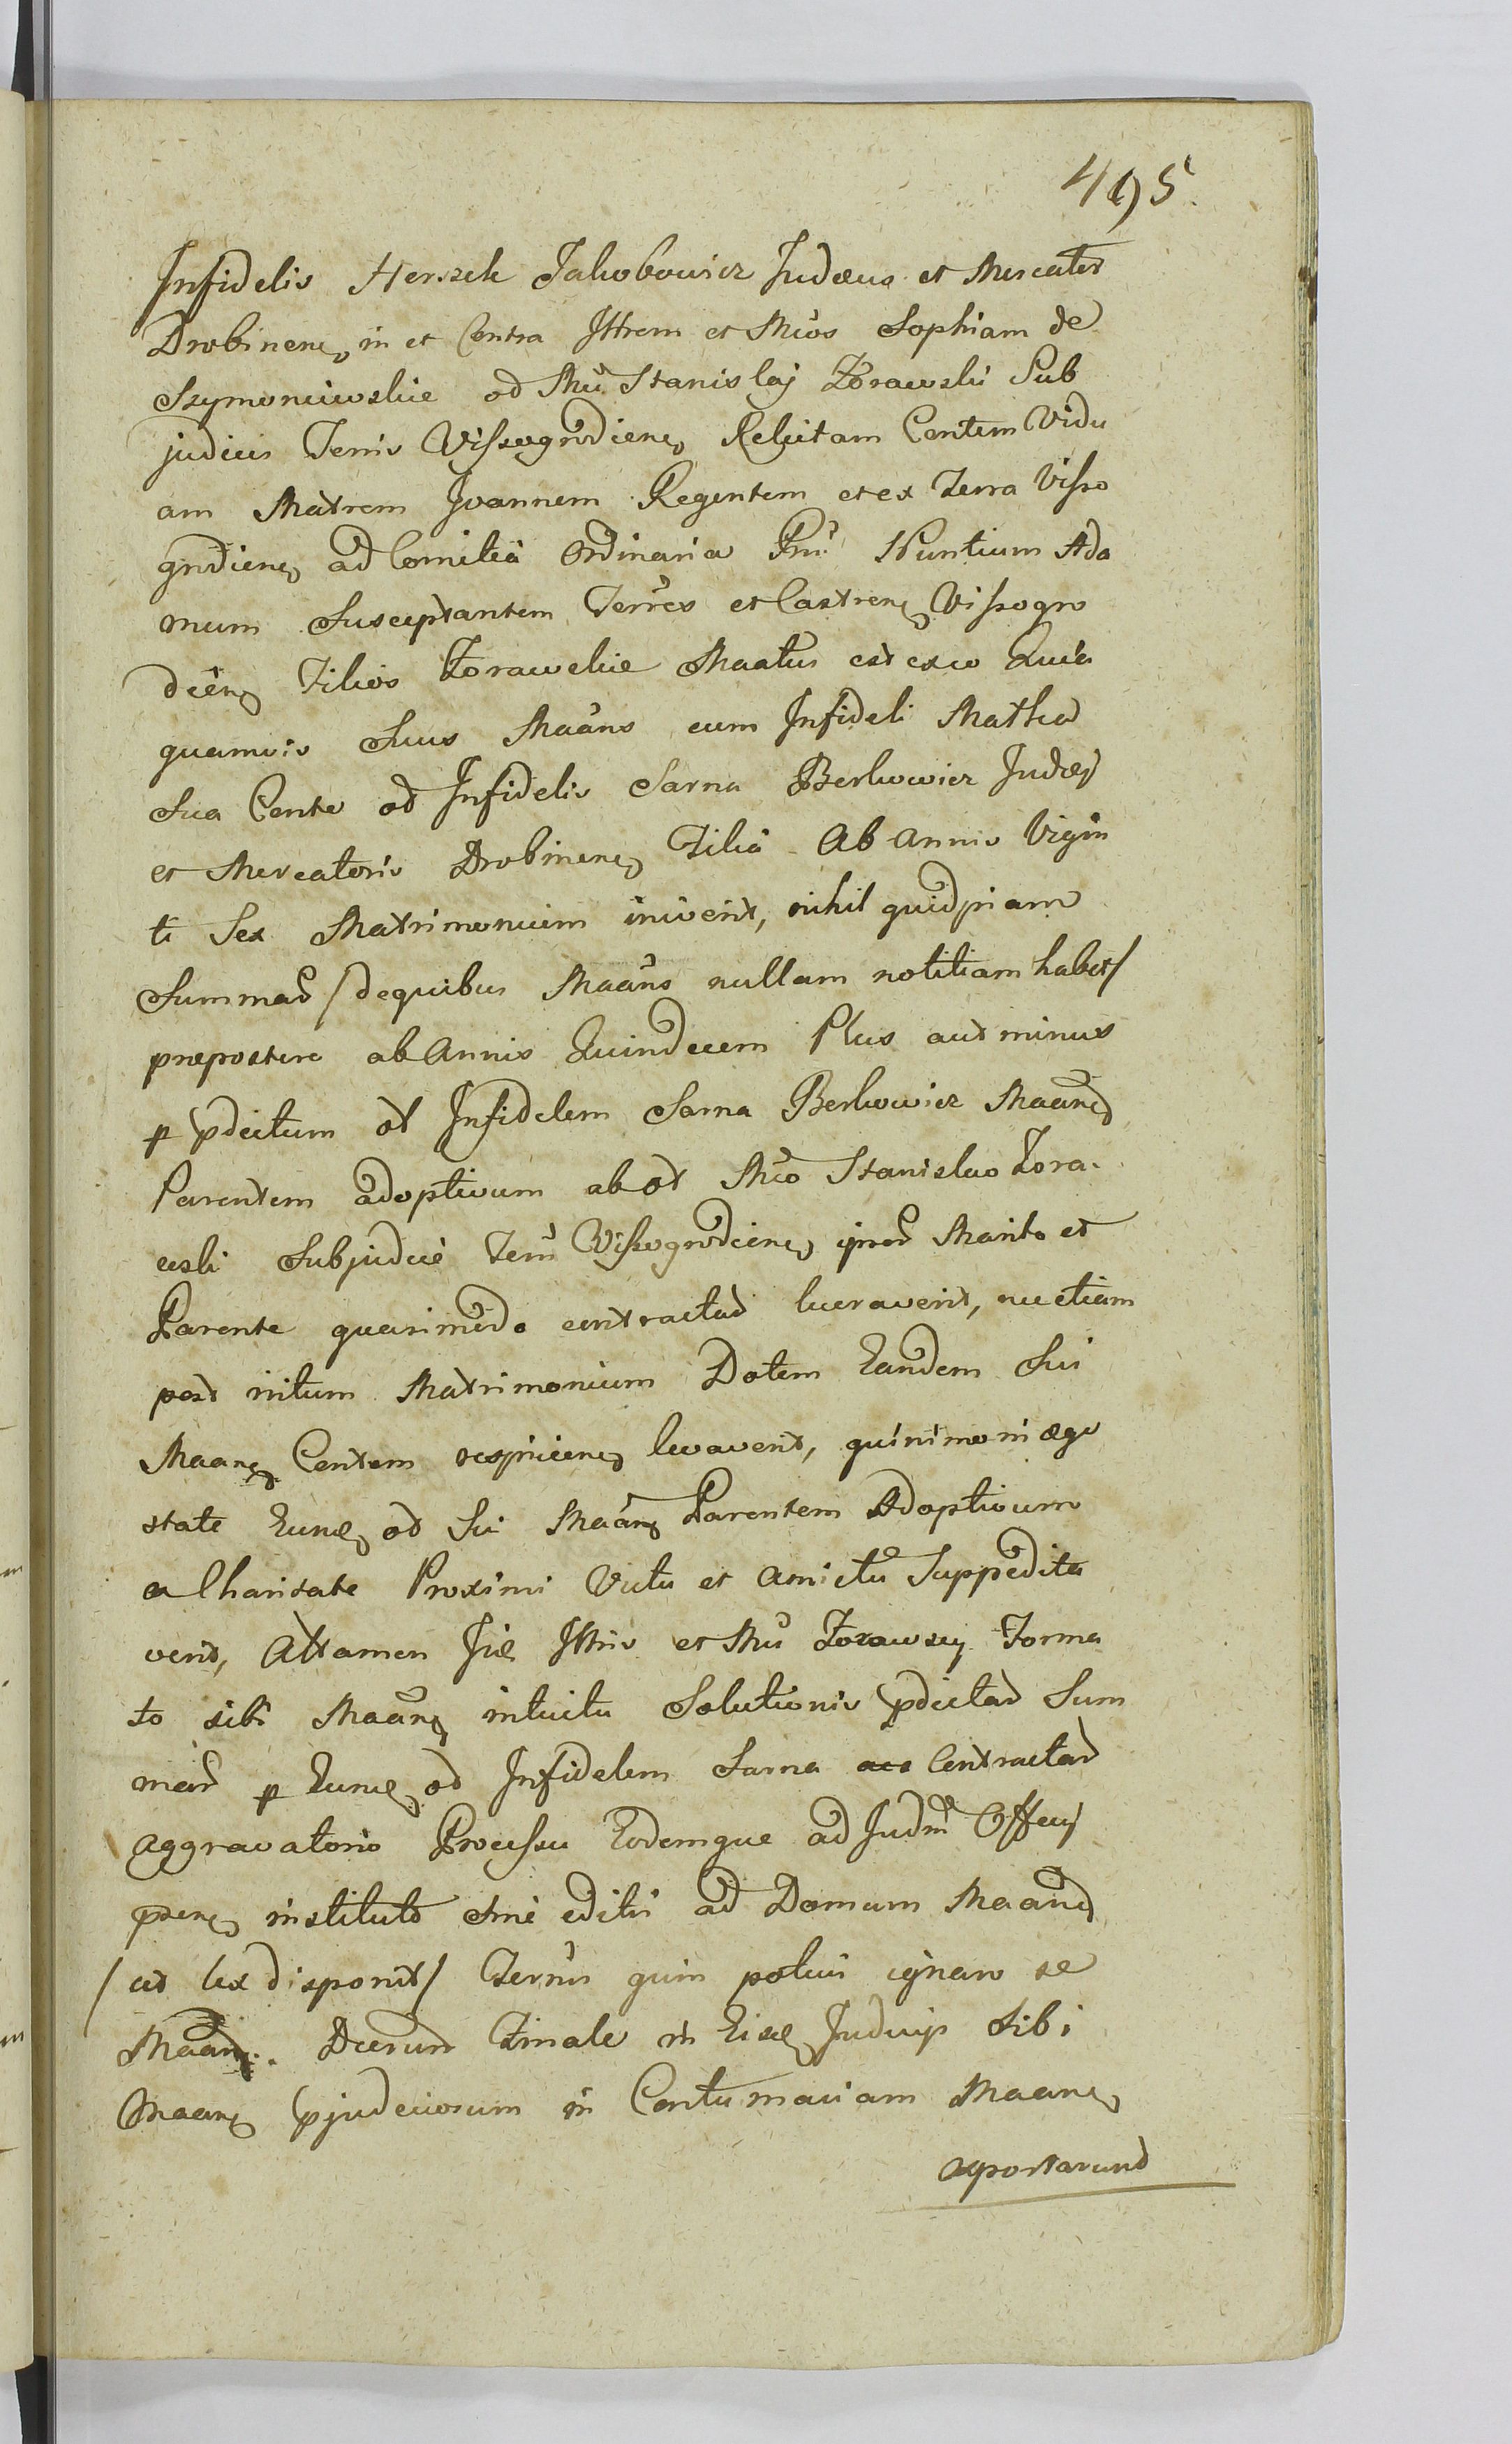 495.
Infidelis Herszek Jakobowicz Judæus et Mercator
Drobinen, in et Contra Jttrem et Mcos Sophiam de
Szymoniewskie od Mci Stanislaj Żorawski Sub
judicis Terris Wissogrodien, Relictam Contem Vidu
am Matrem Joannem Regentem et ex Terra Visso
grodien, ad Comitia Ordinaria Nuntium Ada
mum Susceptantem Terres et Castren, Vissogro
dien, Filios Żorawskie Maatus est exco Quia
quamvis Suus Maans cum Infideli Matka
Sua Conte od Infidelis Sarna Berkowicz Judæj
et Mercatoris Drobinen, Filia Ab Annis Vigin
ti Sex Matrimonium iniverit, nihil quidpiam
Summar /de quibus Maans nullam notitiam habet/
præpostere ab Annis Quindecem Plus aut minus
p pdictum od Infidelem Sarna Berkowicz Maans
Parentem adoptivum ab od Mco Stanislao Żora-
wski Subjudice Terri Wissogrodien, Marito et
Parente quasimodo contractas lucraverit, nec etiam
post initum Matrimonium Dotem Eandem Sui
Maan, Contem respicien, levaverit, quinimo in æge
state Eund, od Sui Maan, Parentem Adoptivum
a Charitate Proximi Victu et Amictu Suppedita
verit, Attamen Jttris et Mci Żorawscy Forma
to sibi Maan, intuitu Solutionis pdictar Sum
mar p Eund, od Infidelem Sarna Contractar
Aggravatorio Processu Eodemque ad Judm Officij
psen, instituto Sine editi ad Domum Maans
/ut lex disponit/ Terris quin potius ignaro se
Maan, Decretum Finale in Eisd, Judicijs Sibi
Maan, pjudiciosum in Contumaciam Maan,
asportarunt